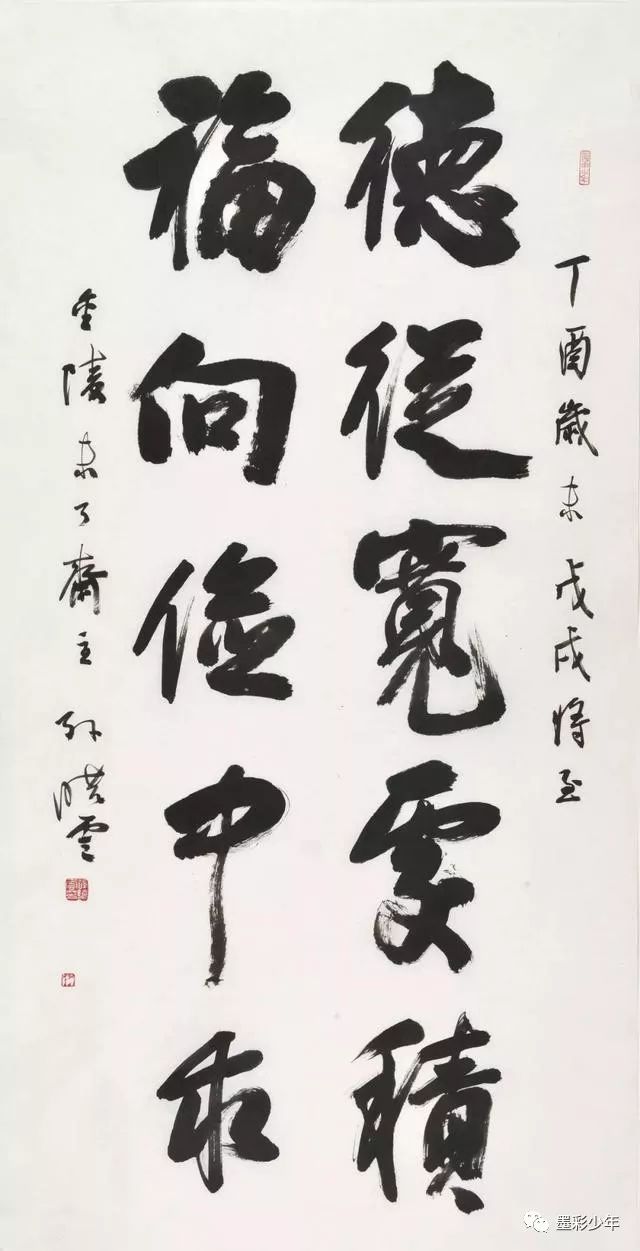 丁酉歲末戊戌將至
德從寬處積
福向儉中求
金陵未了齋主孫曉雲
墨彩少年